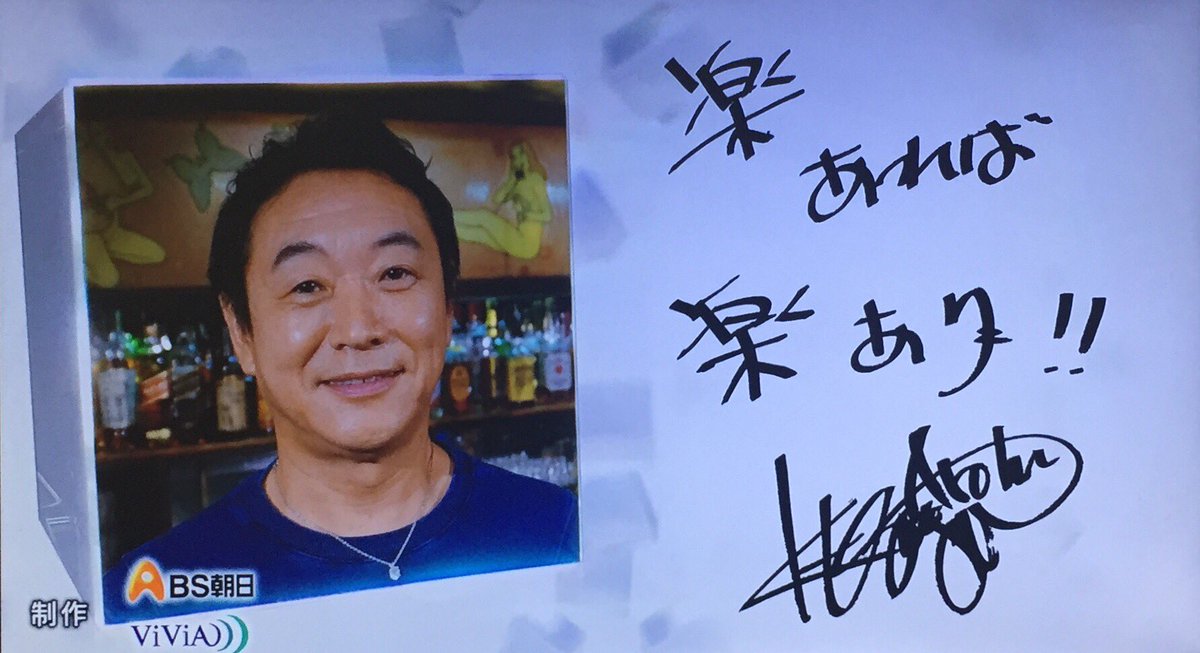 楽
あれば
楽あり!!
BS朝日
制作
ViViA